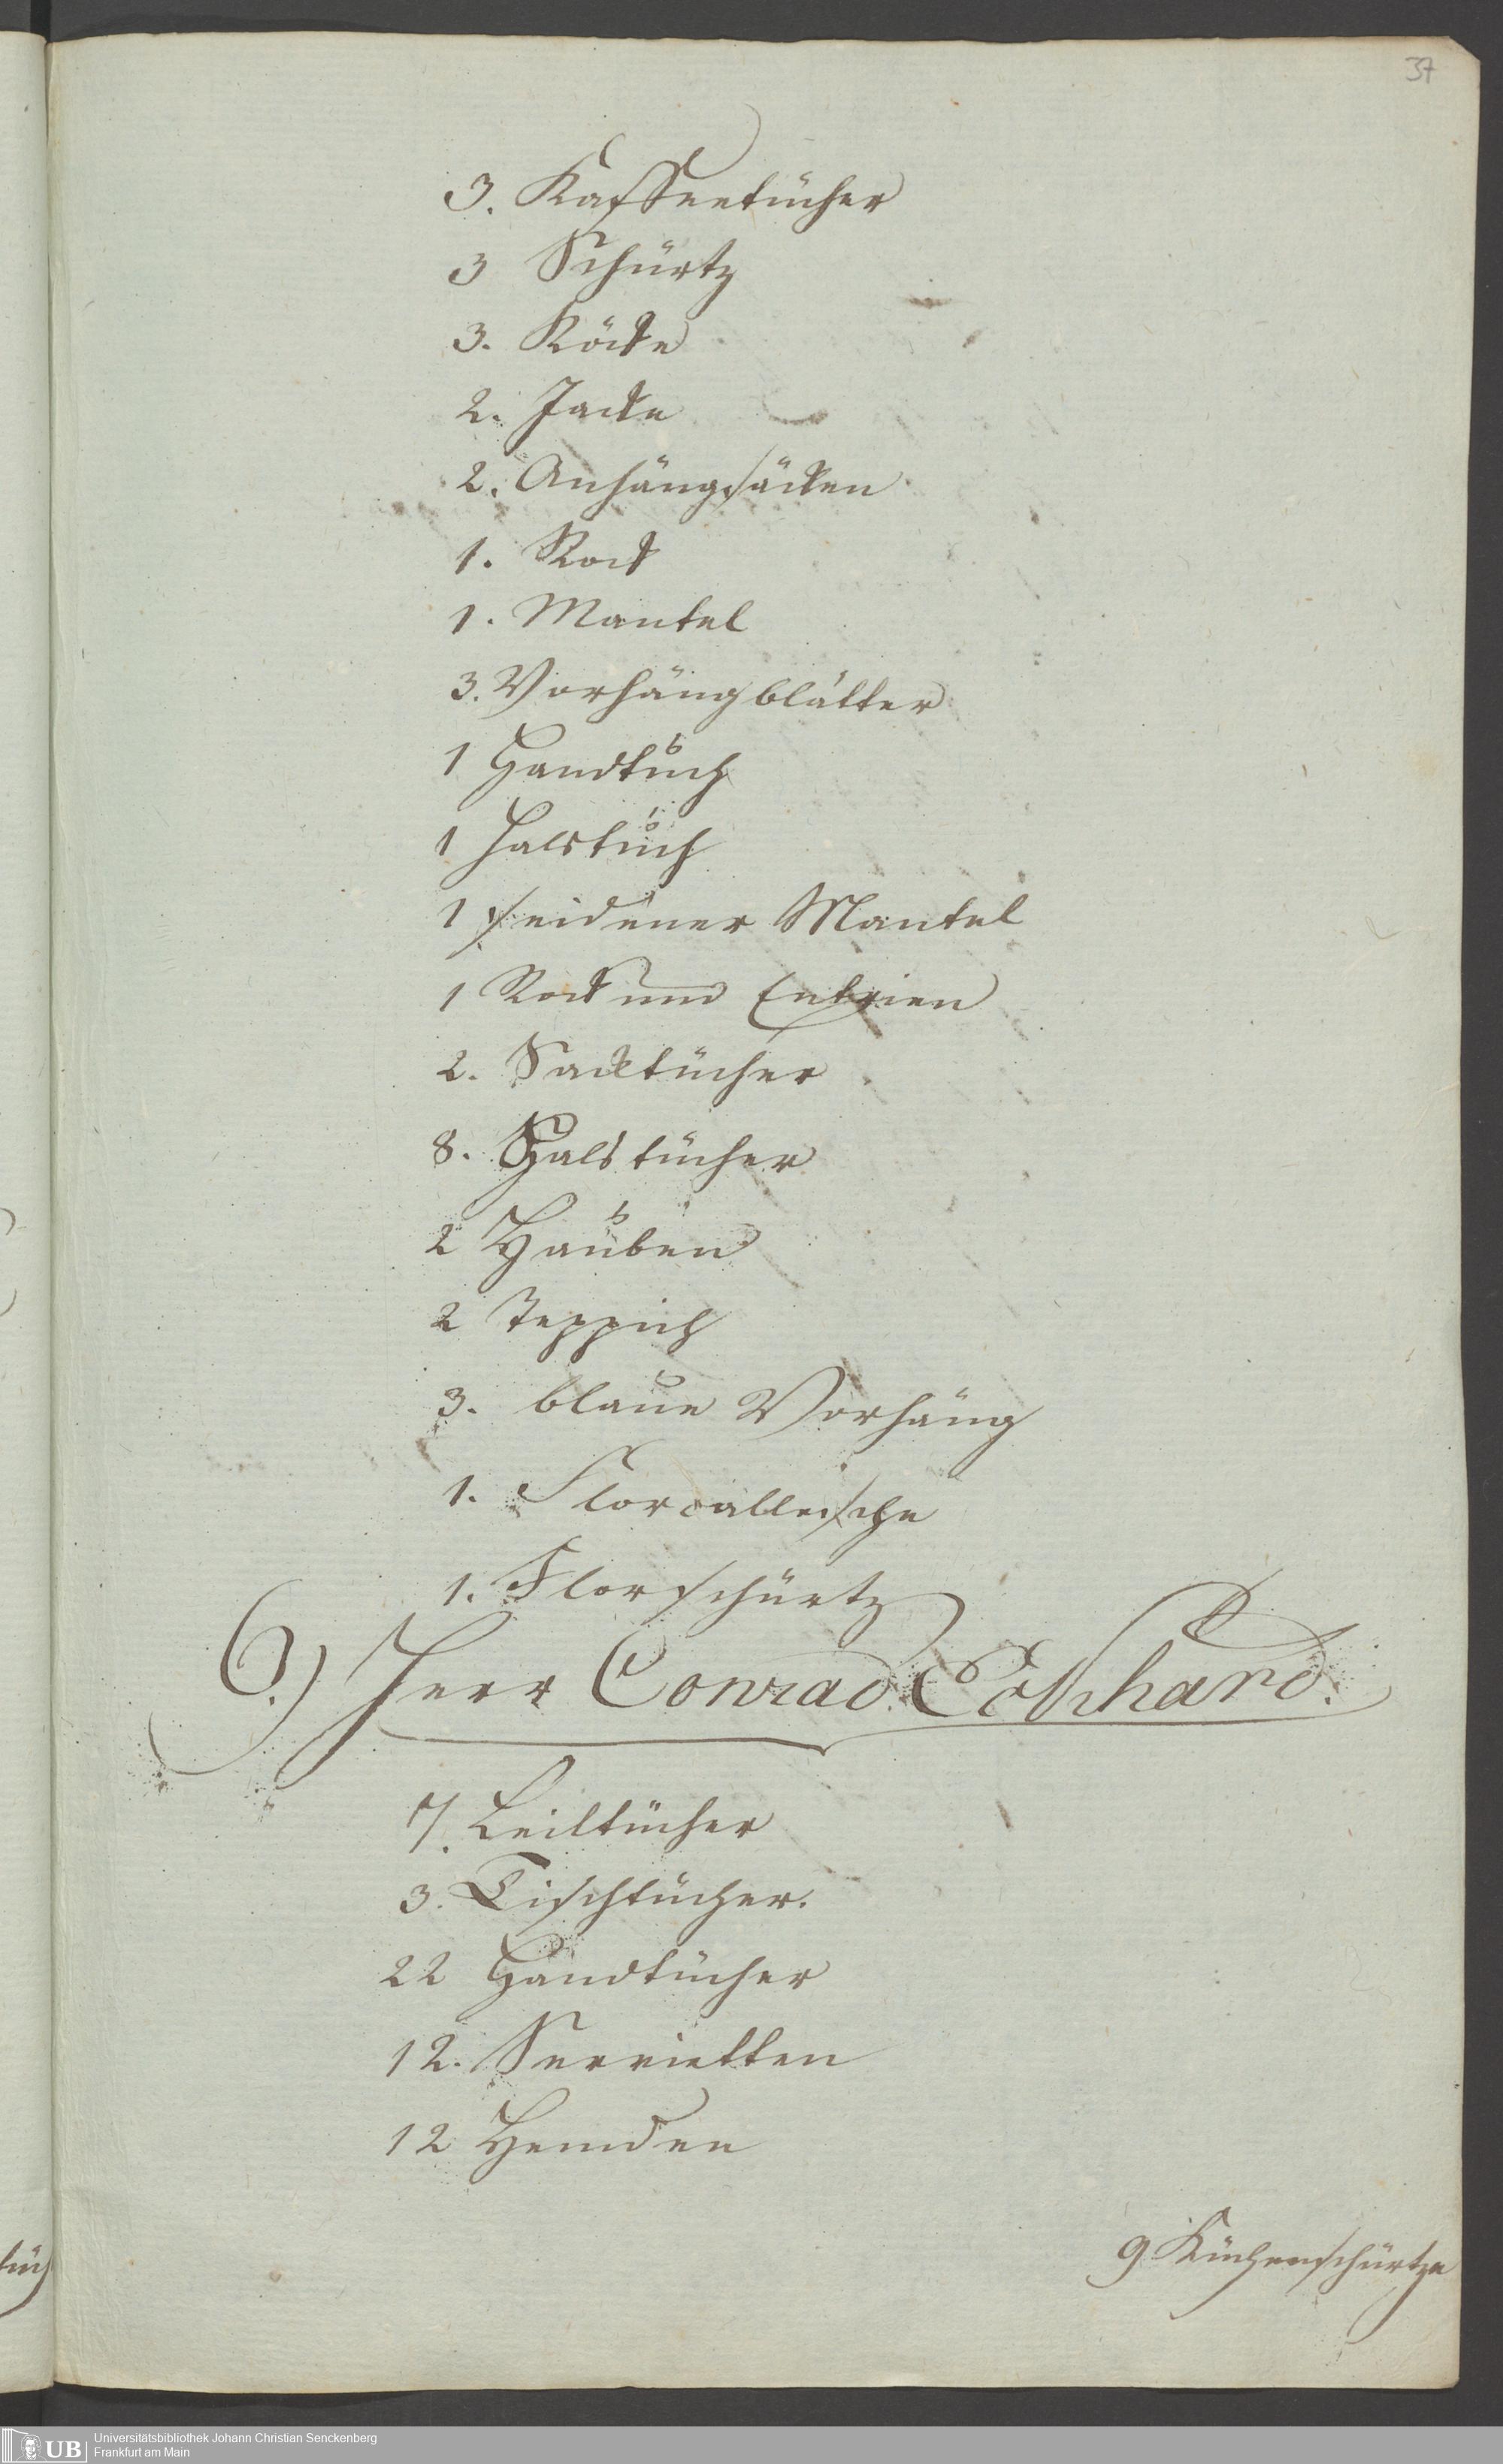 37
3. Kaffeetücher
3 Schürtz
3. Röcke
2. Jacke
2. Anhängsäcken
1. Rock
1. Mantel
3. Vorhängblätter
1 Handtuch
1 Halstuch
1 seidener Mantel
1 Rock und Entrien
2. Sacktücher
8. Halstücher
2 Hauben
2 Teppich
3. blaue Vorhäng
1. Flor
1. Florschürtz
6.) Herr Conrad Eckhard.
7. Leiltücher
3. Tischtücher.
22 Handtücher
12. Servietten
12 Hemden
9 Küchenschürtze
tuch
UB
Universitätsbibliothek Johann Christian Senckenberg
Frankfurt am Main